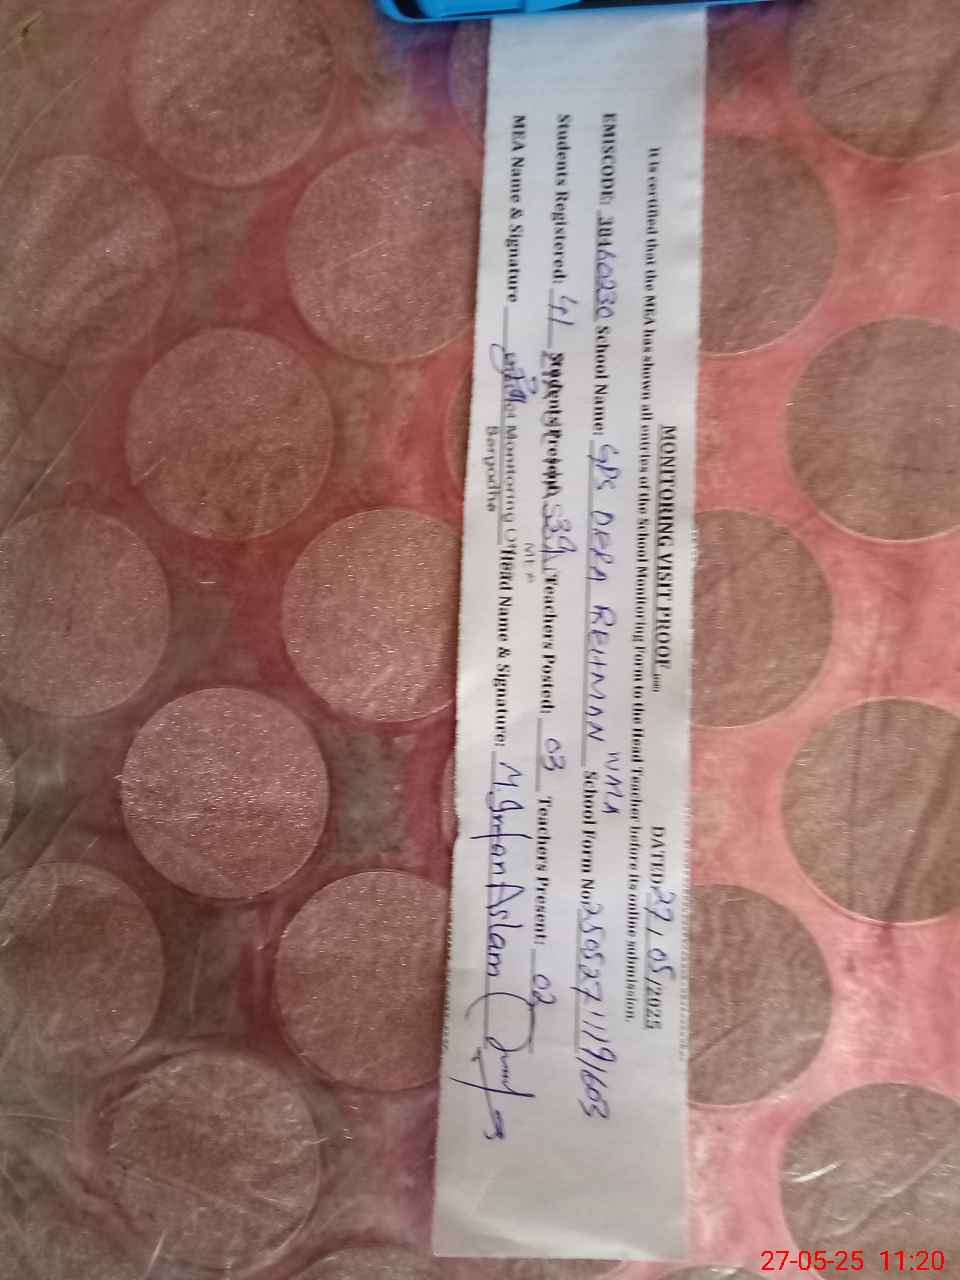 MONITORING VISIT PROOF DATED 27/05/2025
It is certified that the MEA has shown all entries of the School Monitoring Form to the Head Teacher before its online submission.
EMISCODE: 38460230 School Name: GPS DERA REHMAN WALA School Form No: 25052711191603
Students Registered: 41 Students Present: 39 Teachers Posted: 03 Teachers Present: 02
MEA Name & Signature Head Name & Signature: M. Irfan Aslam
MEA
Monitoring
27-05-25 11:20